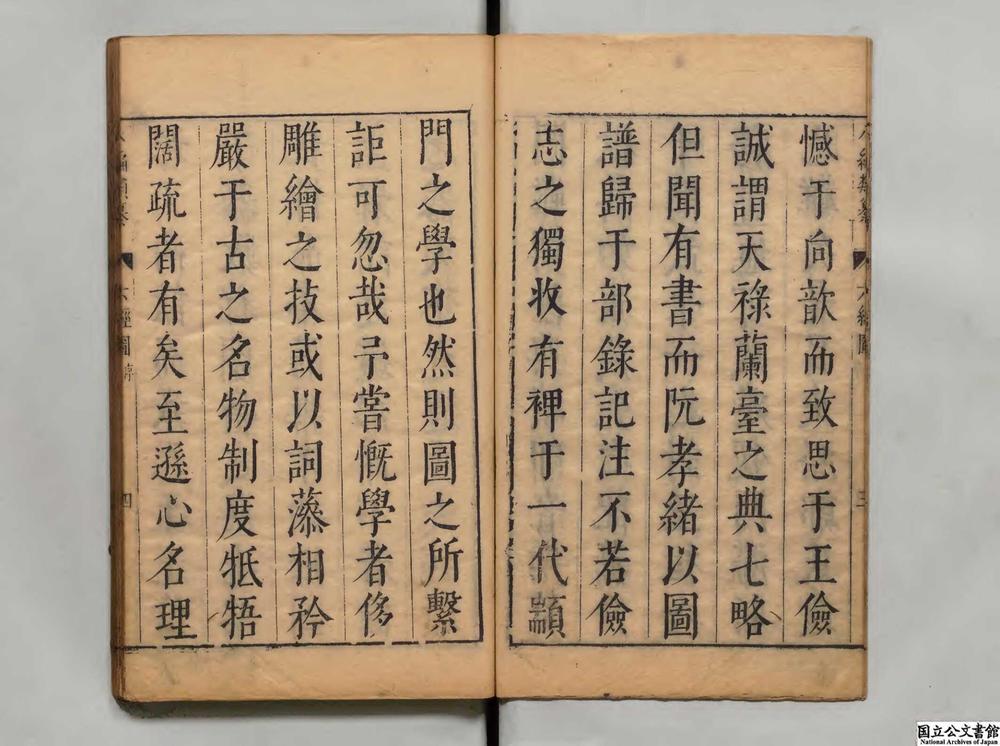 憾于向歆而致思于王儉
誠謂天祿蘭臺之典七略
但聞有書而阮孝緒以圖
譜歸于部錄記注不若儉
志之獨收有裨于一代顓
門之學也然則圖之所繫
詎可忽哉予嘗慨學者侈
雕繪之技或以詞藻相矜
嚴于古之名物制度牴牾
闊疏者有矣至遜心名理
八編類纂 六經圖 三
八編類纂 六經圖序 四
国立公文書館
National Archives of Japan